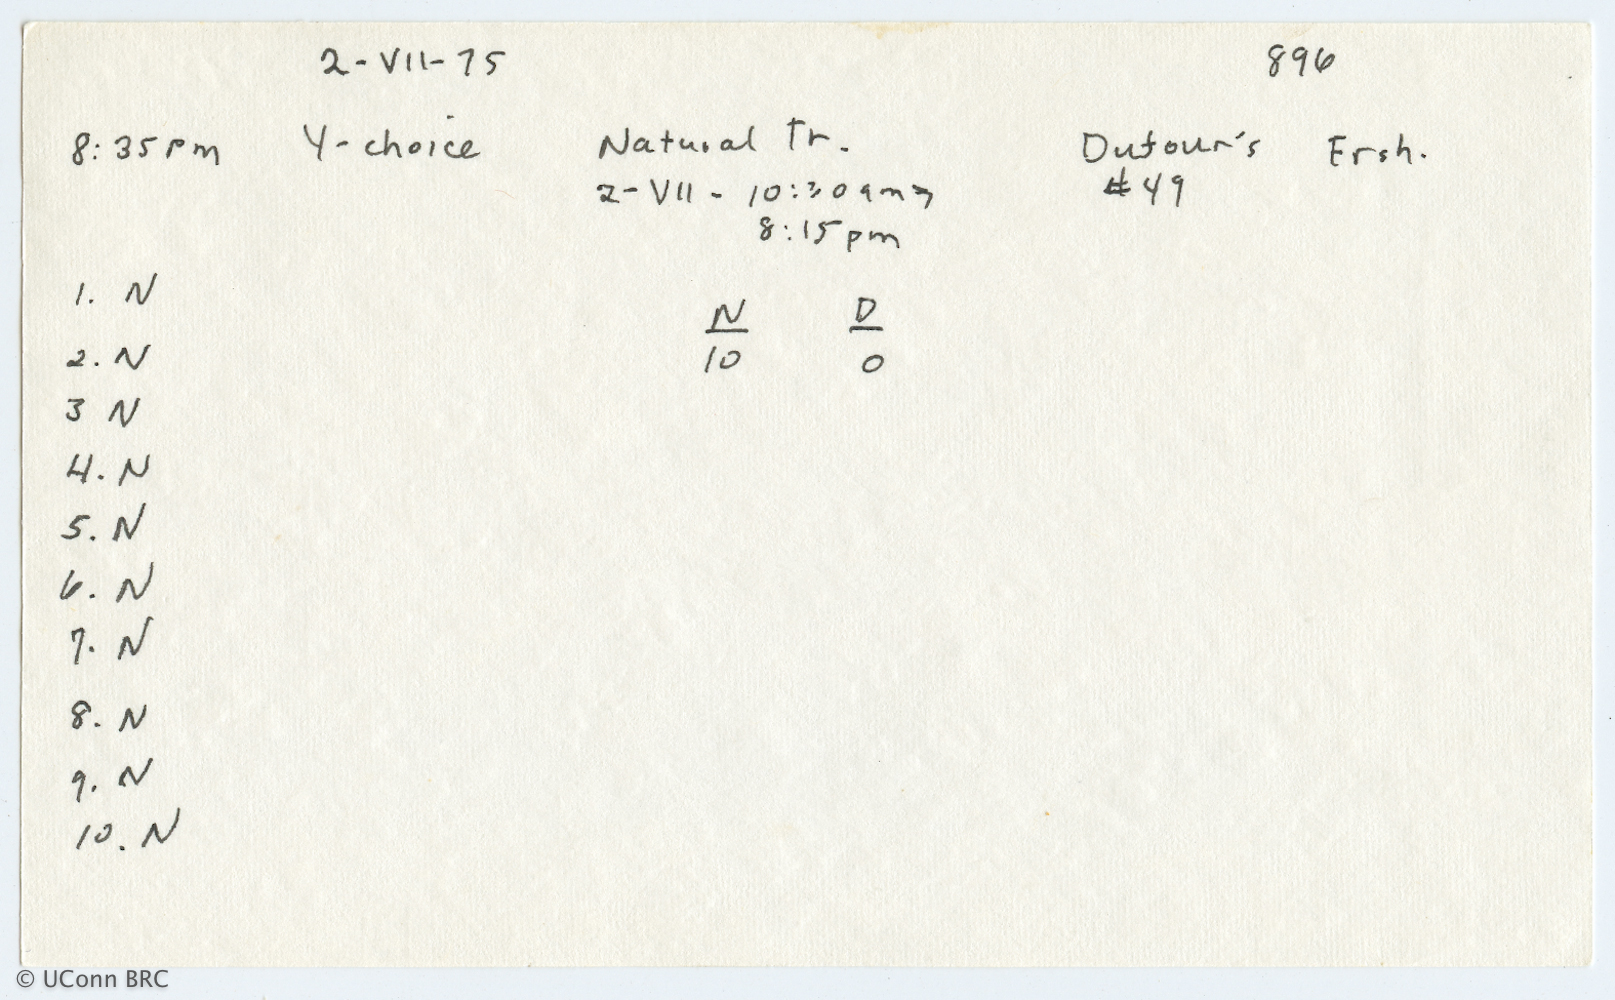 2-VII-75 896
8:35pm Y-choice Natural Tr. Dufour's Ersh.
2-VII - 10:30am→ #49
8:15pm
1. N
N D
10 0
2. N
3 N
4. N
5. N
6. N
7. N
8. N
9. N
10. N
© UConn BRC